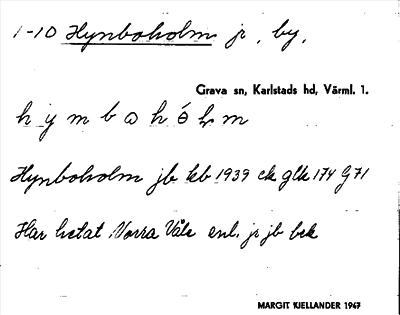 1-10 Hynboholm jr, by,
Grava sn, Karlstads hd, Värml. l.
hymbahólm
Hynboholm jb kb 1939 ek glk 174 G71
Har hetat Norra Våle enl. jr jb bek
MARGIT KJELLANDER 1947